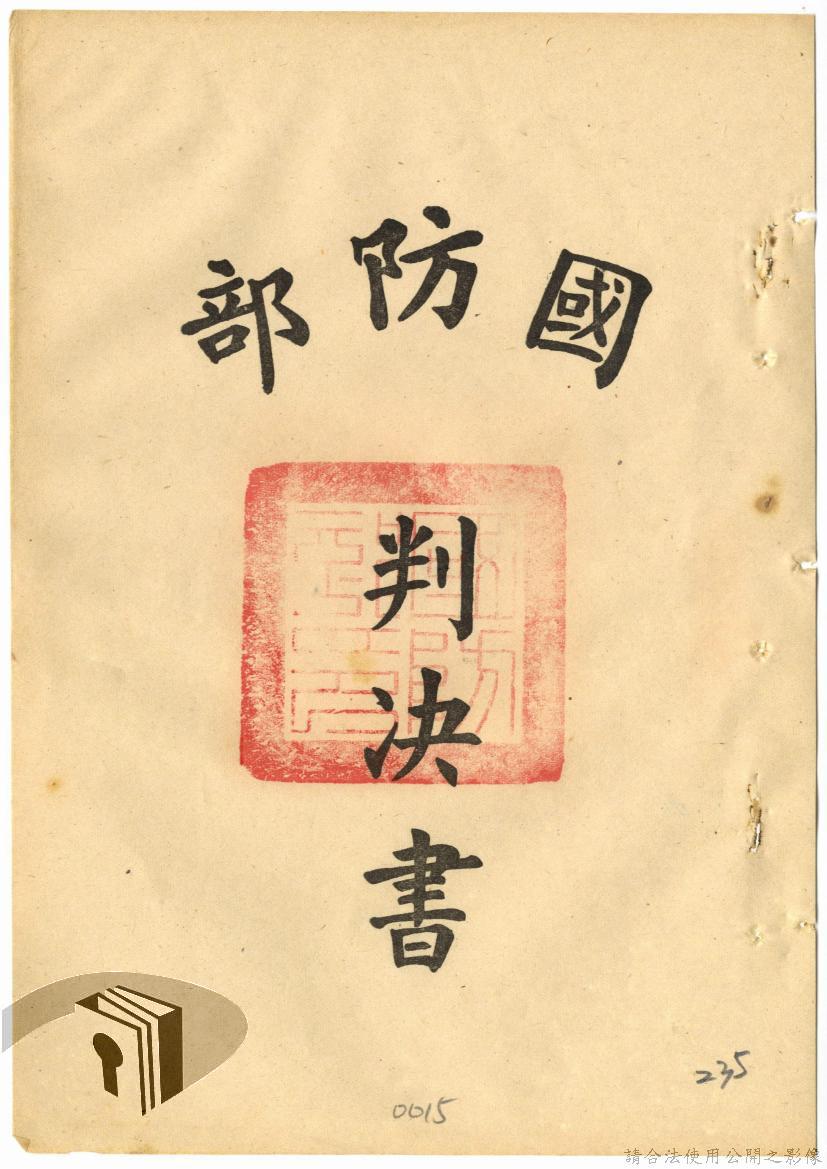 國防部
判決書
235
0015
請合法使用公開之影像